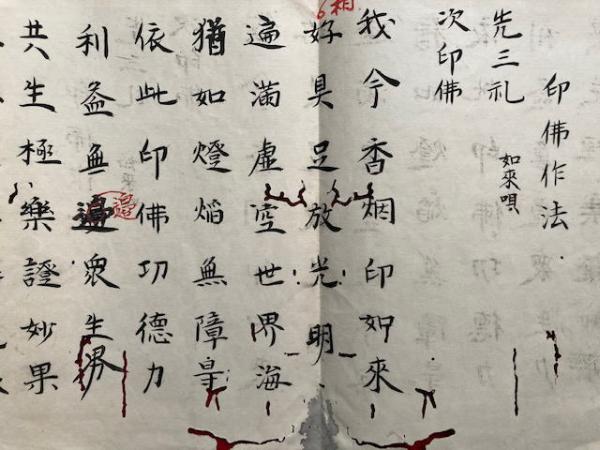 印佛作法
如來唄
先三礼
次印佛
我今香烟印如來
相
好具足放光明
遍滿虚空世界海
猶如燈焔無障㝵
依此印佛功德力
利益無邊衆生界
邊
共生極樂證妙果